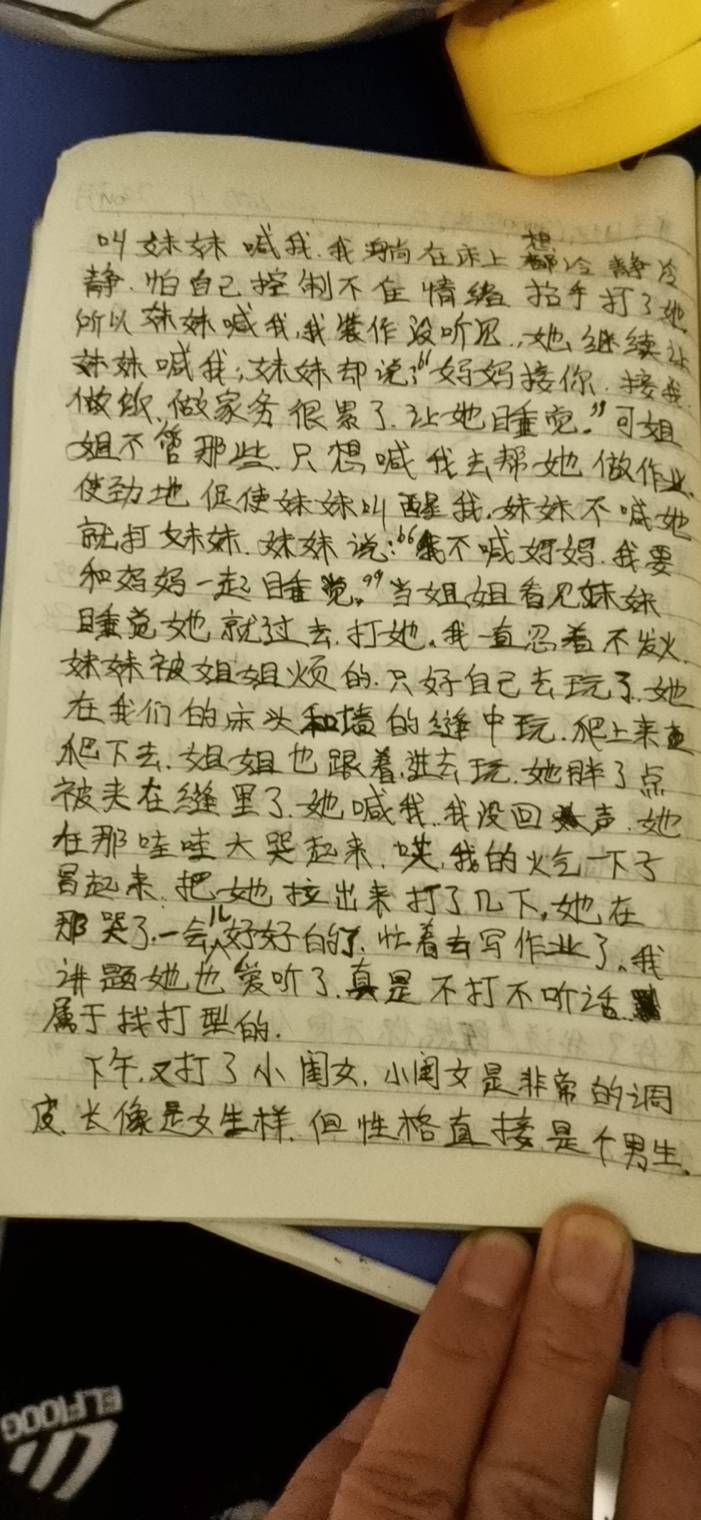 叫妹妹喊我.我躺在床上想冷静冷
静.怕自己控制不住情绪抬手打了她.
所以妹妹喊我,我装作没听见,她继续让
妹妹喊我;妹妹却说:“妈妈接你.接我.
做饭.做家务很累了.让她睡觉.”可姐
姐不管那些.只想喊我去帮她做作业.
使劲地促使妹妹叫醒我.妹妹不喊她
就打妹妹.妹妹说:“我不喊妈妈.我要
和妈妈一起睡觉.”当姐姐看见妹妹
睡觉她就过去.打她.我一直忍着不发火.
妹妹被姐姐烦的.只好自己去玩了.她
在我们的床头和墙的缝中玩.爬上来
爬下去.姐姐也跟着进去玩.她胖了点
被夹在缝里了.她喊我.我没回声.她
在那哇哇大哭起来.哎,我的火气一下子
冒起来.把她拉出来打了几下.她在
那哭了.一会儿好好的了.忙着去写作业了.我
讲题她也爱听了.真是不打不听话
属于找打型的.
下午.又打了小闺女.小闺女是非常的调
皮.长像是女生样.但性格直接是个男生.
ELFIOOG